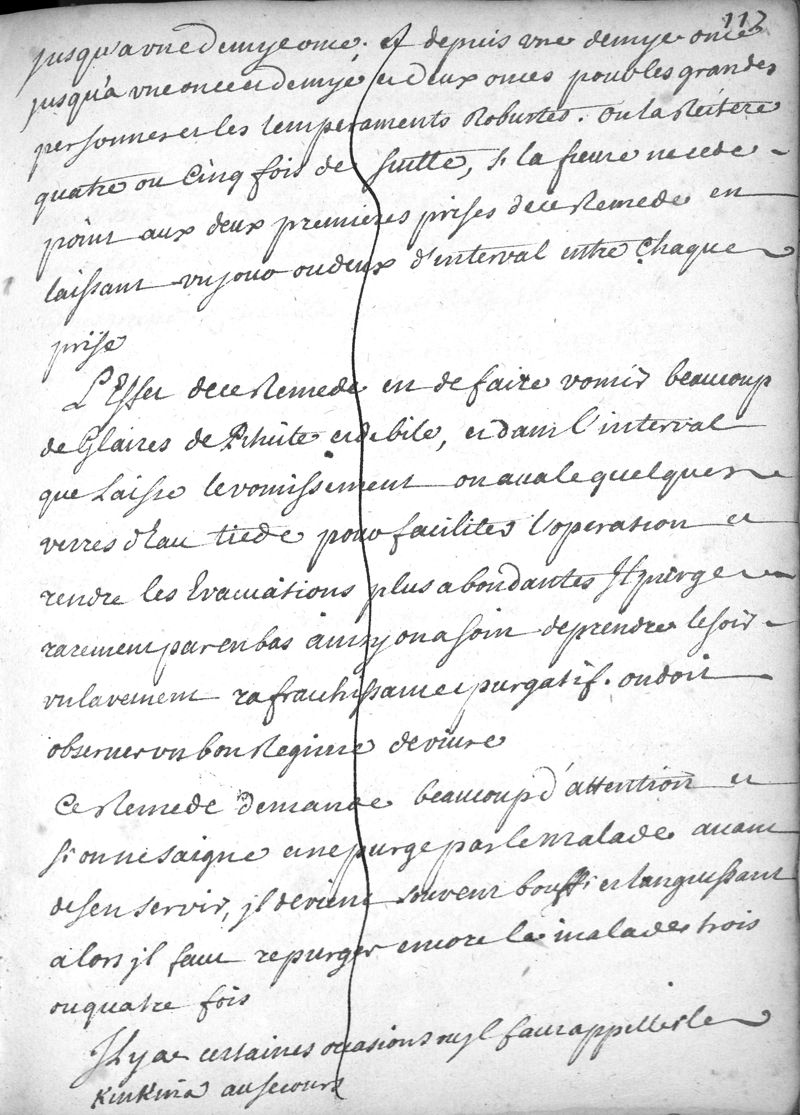 117
jusqu'a vne demye once. et depuis vne demye once
jusqu'a vne once et demye et deux onces pour les grandes
personnes et les temperaments Robustes. on la Reïtere
quatre ou Cinq fois de suitte, si la fievre ne cede
point aux deux premieres prises de ce Remede en
laissant vn jour ou deux d'interval entre Chaque
prise
L'Effet de ce Remede est de faire vomir beaucoup
de Glaires de Pituite et de bile, et dans l'interval
que Laisse le vomissement on avale quelques
verres d'Eau tiede pour faciliter l'operation et
rendre les Evacuations plus abondantes Il purge
rarement par en bas ainsy on a soin de prendre le soir
vn lavement rafraichissant et purgatif. on doit
observer vn bon Regime de vivre
Ce Remede demande beaucoup d'attention et
si on ne saigne et ne purge pas le malade avant
de s'en servir, jl devient souvent bouffi et languissant
alors jl faut repurger encore le malade trois
ou quatre fois
Jl y a certaines occasions ou jl faut appeller le
KinKina au secours